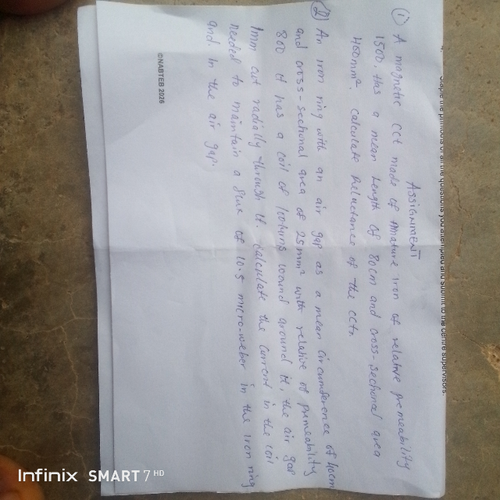 ASSIGNMENT
① A magnetic cct made of Amature iron of relative premeability
1500. Has a mean length of 80cm and cross-sectional area
400mm². Calculate Reluctance of the cct,
② An iron ring with an air gap as a mean circumference of 40cm
and cross-sectional area of 25mm² with relative of premeability
800 it has a coil of turns wound around it. the air gap
1mm cut radially through it. Calculate the current in the coil
needed to maintain a flux of 10.5 micro-weber in the iron ring
and in the air gap.
©NABTEB 2026
Infinix SMART 7 HD